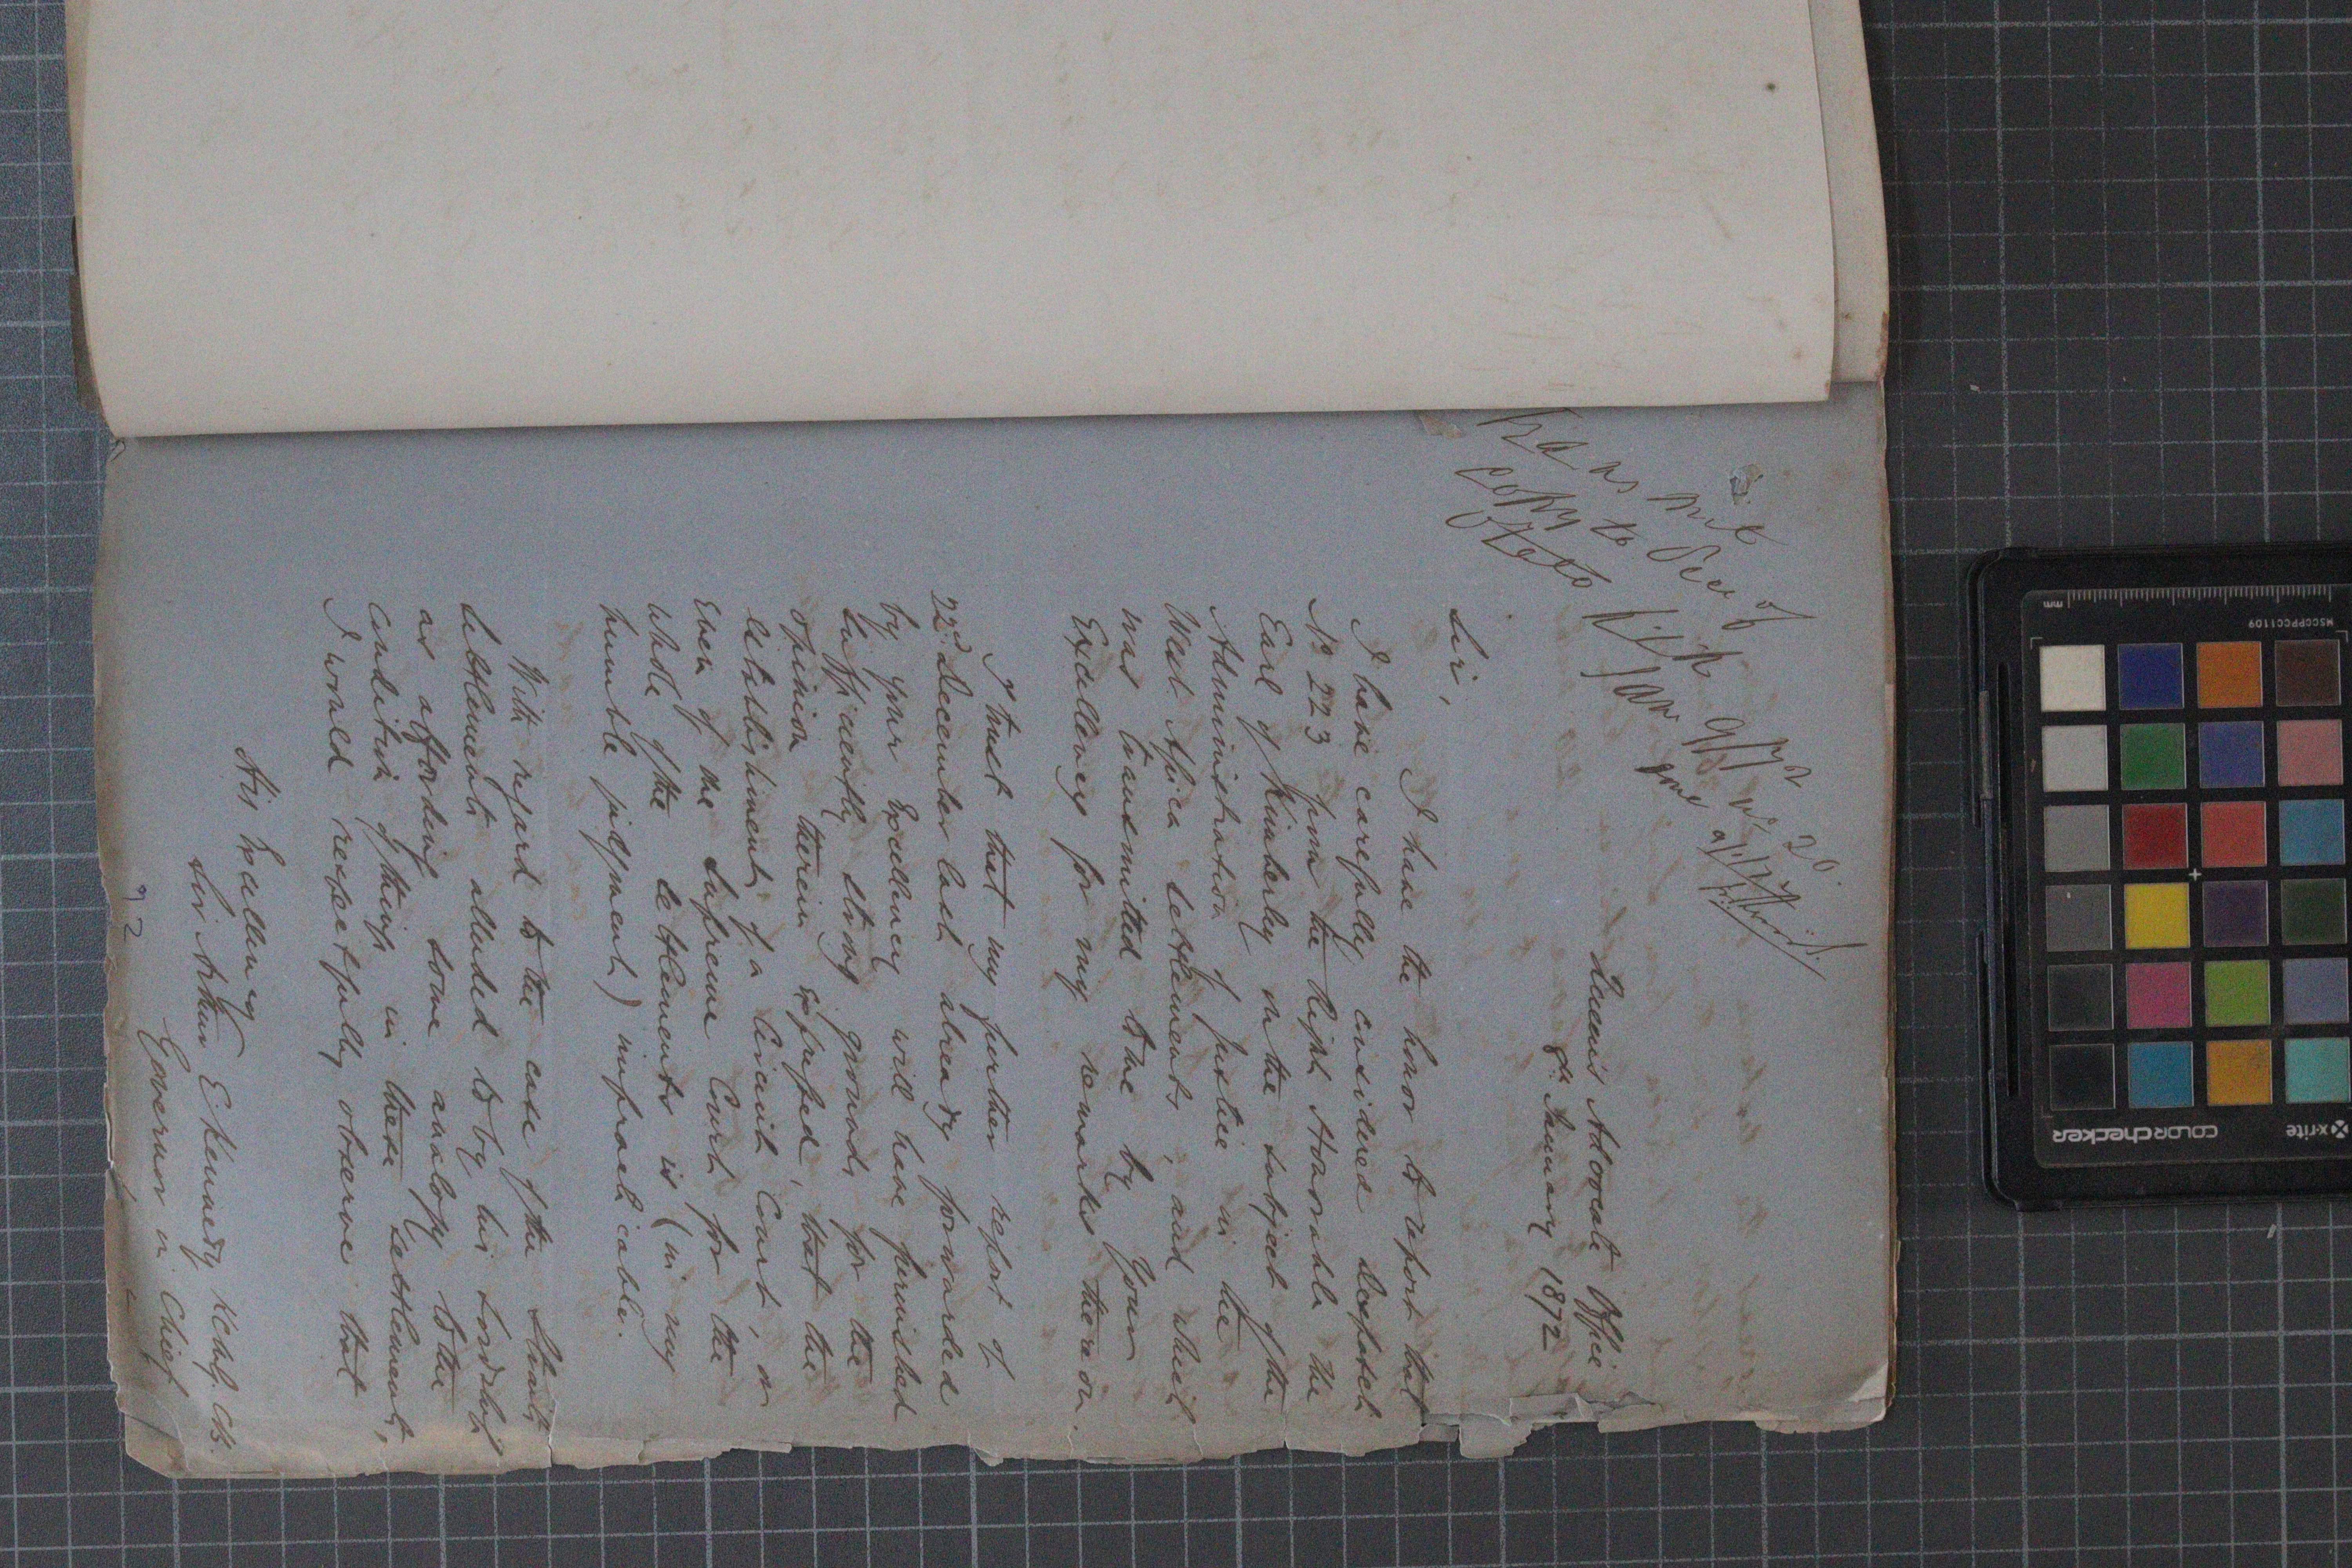 Transmit
copy to Sec of
State
Jan 9/72 No 20.
Queen's Advocate Office
8th January 1872
Sir,
I have the honor to report that
I have carefully considered despatch
No 223 from the Right Honorable the
Earl of Kimberley on the subject of the
Administration of Justice in the
West Africa Settlements, and which
was transmitted to me by Your
Excellency for my remarks thereon.
I trust that my further report of
22nd December last already forwarded
by your Excellency will have furnished
sufficiently strong grounds for the
opinion therein expressed, that the
establishment of a Circuit Court, or
even of the Supreme Court for the
whole of the Settlements is (in my
humble judgment) impracticable.
With regard to the case of the Straits
Settlements alluded to by his Lordship
as affording some analogy to the
condition of things in these Settlements,
I would respectfully observe that
His Excellency
Sir Arthur E. Kennedy KCMG. CB.
Governor in Chief
92